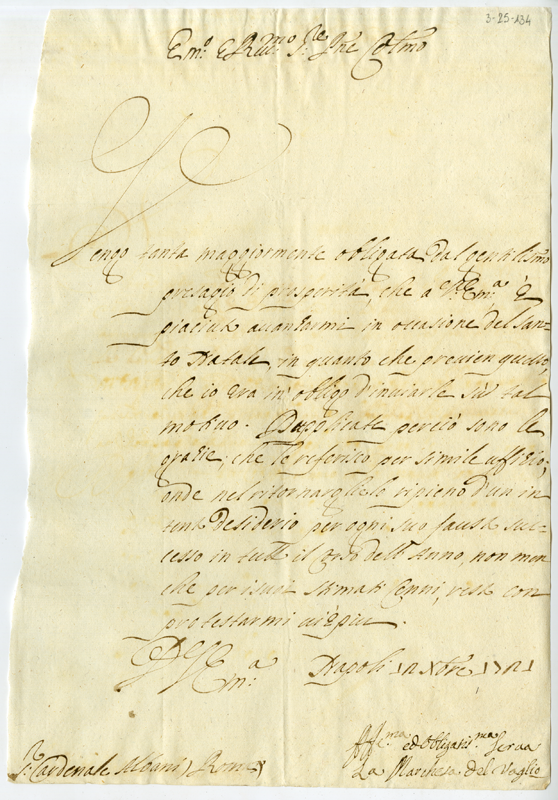 3-25-134
Em.o E Rev.mo S.re P.ne Col.mo
Vengo tanta maggiormente obligata dal gentilissimo
presagio di prosperità, che a V.ra Em.a è
piaciuto avanzarmi in occasione del San=
to Natale, in quanto che previen quello,
che io era in obligo d'inviarle sù tal
motivo. Duplicate perciò sono le
grazie, che le referisco per simile uffizio;
onde nel ritornarglielo ripieno d'un in
tenso desiderio per ogni suo fausto suc=
cesso in tutto il Corso dell'Anno, non men
che per i suoi stimati Cenni, resto con
protestarmi viepiu.
D V Em.a Napoli
S.r Cardinale Albani) Roma)
Aff.ma ed Obligatis.ma Serva
La Marchesa del Vaglio